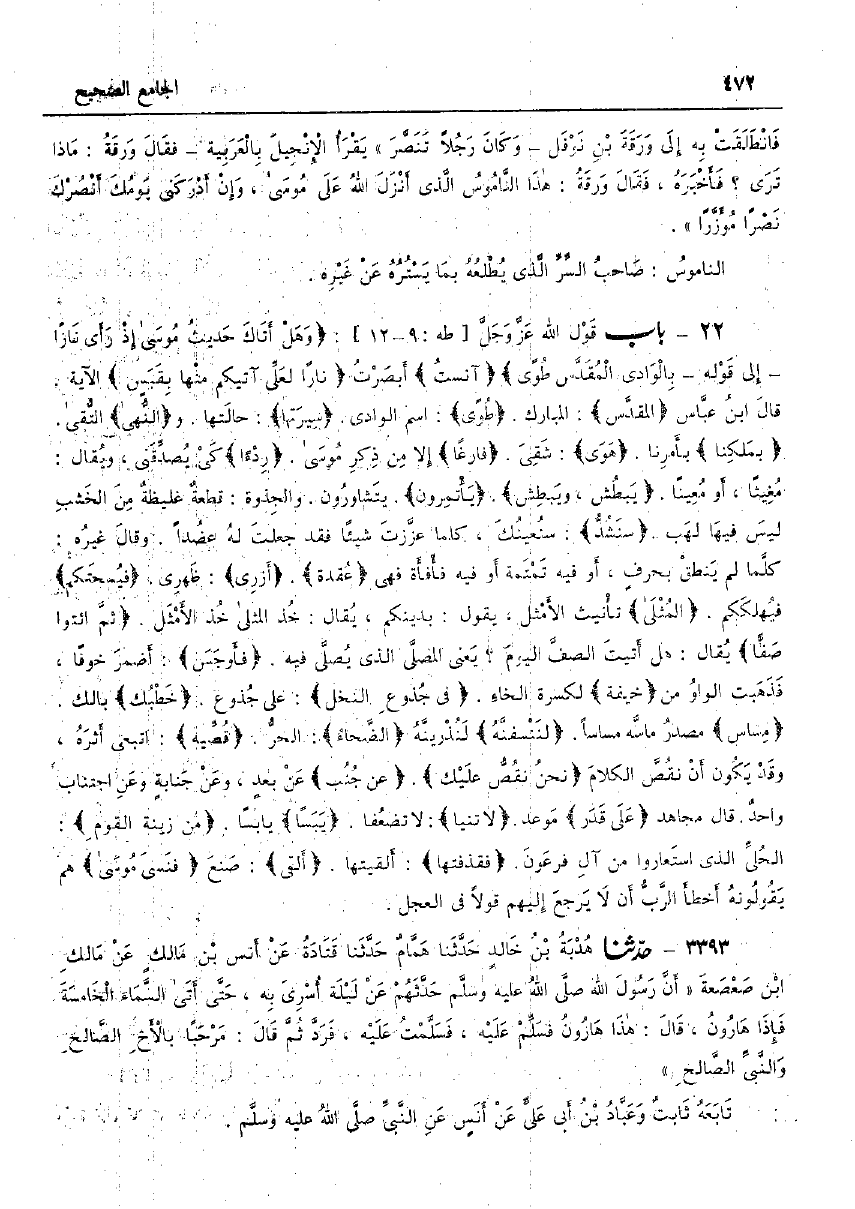 ٤٧٢ الجامع الصحيح
فَانْطَلَقَتْ بِهِ إِلَى وَرَقَةَ بْنِ نَوْفَل – وَكَانَ رَجُلاً تَنَصَّرَ » يَقْرَأُ الْإِنْجِيلَ بِالْعَرَبِية – فقَالَ وَرَقَةُ : مَاذا
تَرَى ؟ فَأَخْبَرَهُ ، فَقَالَ وَرَقةُ : هٰذَا النَّامُوسُ الَّذى أَنْزَلَ اللهُ عَلَى مُوسَىٰ ، وَإِنْ أَدْرَكَنى يَومُكَ أَنْصُرْكَ
نَصْرًا مُوَزَّرًا » .
الناموسُ : صَاحبُ السرِّ الَّذى يُطْلعُهُ بمَا يَسْتُرُهُ عَنْ غَيْرِه .
٢٢ – باب قَوْل الله عَزَّ وَجَلَّ [ طه : ٩–١٢ ] : ﴿وَهَلْ أَتَاكَ حَديثُ مُوسَىٰ إذْ رَأى نَارًا
– إلى قَوْله – بالْوَادى الْمُقَدَّس طُوًى﴾ ﴿ آنستُ﴾ أبصَرْتُ ﴿ نارًا لعَلِّى آتيكم منْها بقَبَسٍ ﴾ الآية .
قالَ ابنُ عبَّاس ﴿المقدَّس﴾ : المبارك . ﴿طُوًى﴾ : اسم الوادى . ﴿سيرَتها﴾ : حالَتها . و﴿النُّهىٰ﴾ التُّقىٰ .
﴿ بمَلكِنا ﴾ بأمرِنا . ﴿هَوَى﴾ : شَقىَ . ﴿فارغًا﴾ إلا مِن ذِكرِ مُوسىٰ . ﴿رِدْءًا﴾ كَىْ يُصدِّقَنى ، ويُقال :
مُغيثًا ، أو مُعينًا . ﴿ يَبطُش ، ويَبطِش﴾ . ﴿يَأْتمِرون﴾ . يتشاوَرُون . والجِذوة : قطعةٌ غليظةٌ مِنَ الخَشبِ
ليسَ فيهَا لهَب . ﴿سنَشُدُّ﴾ : سنُعينُكَ ، كلما عزَّزتَ شيئًا فقد جعلتَ لهُ عضُداً . وقالَ غيرُه :
كلَّما لم يَنطقْ بحرفٍ ، أو فيه تَمْتَمة أو فيه فأفأة فهى ﴿عُقدة﴾ . ﴿أزرِى﴾ : ظَهرِى . ﴿فيُسحتَكم﴾
فيُهلكَكم . ﴿المُثْلَىٰ﴾ تأنيث الأمْثل ، يقول : بدينكم ، يُقال : خُذ المثلىٰ خُذ الأَمْثَل . ﴿ثمَّ ائتوا
صَفًّا﴾ يُقال : هل أتيتَ الصفَّ اليومَ ؟ يَعنى المصلَّى الذى يُصلَّى فيه . ﴿فأوجَسَ﴾ : أضمرَ خوفًا ،
فَذَهَبت الواوُ من ﴿خيفة﴾ لكسرة الخاءِ . ﴿ فى جُذوع النخل﴾ : على جُذوع . ﴿خَطْبُك﴾ بالك .
﴿مِساس﴾ مصدرُ ماسَّه مساساً . ﴿لنَنْسفنَّهُ﴾ لَنُذْرِينَّهُ ﴿الضَّحاءُ﴾ : الحرُّ . ﴿قُصِّيه﴾ : اتبعى أثرَهُ ،
وقَدْ يَكُون أنْ نقُصَّ الكلامَ ﴿نحنُ نقُصُّ علَيْك﴾ . ﴿عن جُنُب﴾ عَنْ بعدٍ ، وعَنْ جَنابةٍ وعَنِ اجتنابٍ
واحدٌ . قال مجاهد ﴿عَلَى قَدَر﴾ مَوعد . ﴿لاتنيا﴾ : لا تضعُفا . ﴿يَبَسًا﴾ يابسًا . ﴿مِن زينة القوم﴾ :
الحُلىِّ الذى استَعاروا من آلِ فرعَونَ . ﴿فقذفتها﴾ : ألقيتها . ﴿ألقى﴾ : صَنعَ ﴿فنَسىَ مُوسَىٰ﴾ هم
يَقُولُونهُ أخطأَ الرَّبُّ أن لَا يَرجعَ إليهم قولاً فى العجل .
٣٣٩٣ – حدّثنا هُدْبَةُ بْنُ خالدٍ حَدَّثَنا هَمَّامٌ حَدَّثنا قَتَادَةُ عَنْ أنس بْنِ مَالكٍ عَنْ مَالكِ
ابْن صَعْصَعةَ « أَنَّ رَسُولَ الله صلَّى اللهُ عليه وسلَّم حَدَّثَهُمْ عَنْ لَيْلَة أُسْرِىَ بِه ، حَتَّى أَتىٰ السَّمَاءَ الْخَامسَةَ
فَإذَا هَارُونُ ، قَالَ : هٰذَا هَارُونُ فسَلِّمْ عَلَيْه ، فَسَلَّمْتُ عَلَيْه ، فَرَدَّ ثُمَّ قَالَ : مَرْحَبًا بالْأخِ الصَّالحِ
وَالنَّبىِّ الصَّالحِ »
تَابَعَهُ ثَابتٌ وَعَبَّادُ بْنُ أبى عَلىٍّ عَنْ أَنَسٍ عَنِ النَّبىِّ صلَّى اللهُ عليه وَسلَّم .